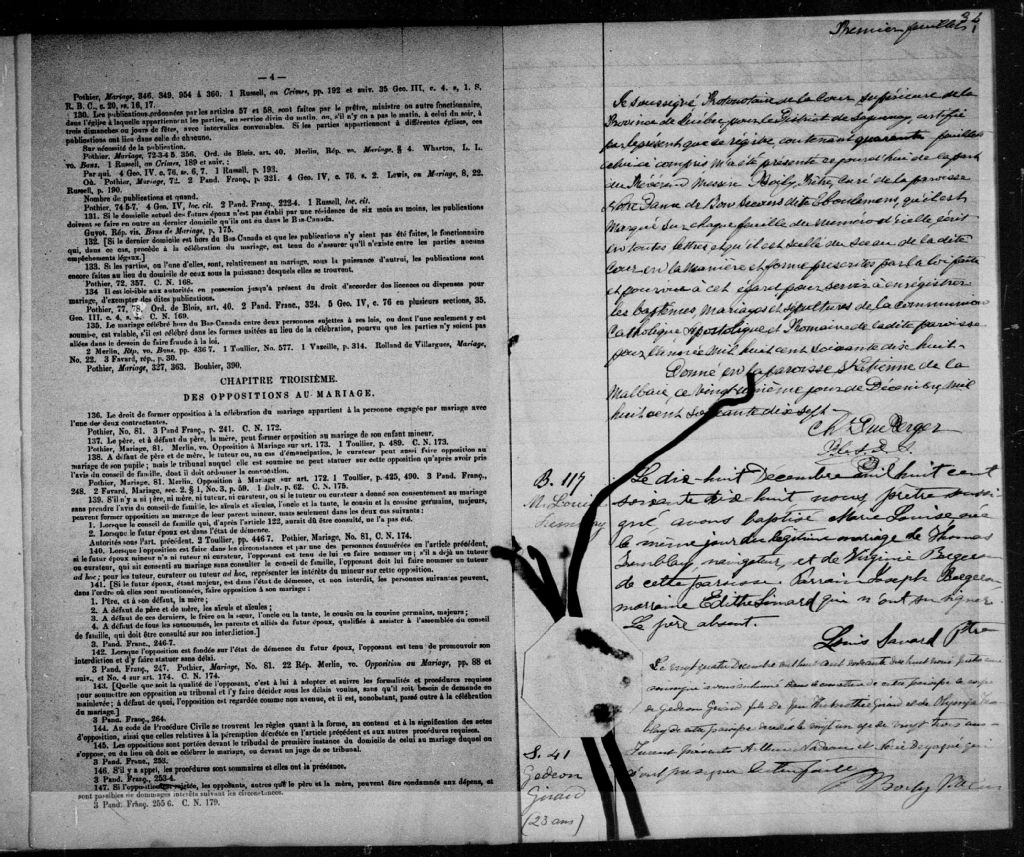 — 4 —
Pothier, Mariage, 346. 349. 954 à 360. 1 Russell, on Crimes, pp. 192 et suiv. 35 Geo. III, c. 4. s, 1. S.
R. B. C., c. 20, ss. 16, 17.
130. Les publications ordonnées par les articles 57 et 58, sont faites par le prêtre, ministre ou autre fonctionnaire,
dans l'église à laquelle appartiennent les parties, au service divin du matin, ou, s'il n'y en a pas le matin, à celui du soir, à
trois dimanches ou jours de fêtes, avec intervalles convenables. Si les parties appartiennent à différentes églises, ces
publications ont lieu dans celle de chacune.
Sur nécessité de la publication.
Pothier, Mariage, 72-3 4 5. 356. Ord. de Blois. art. 40. Merlin, Rép. vo. Mariage, § 4. Wharton, L. L.
vo. Bans. 1 Russell, on Crimes, 189 et suiv. :
Par qui. 4 Geo. IV. c. 76, ss. 6, 7. 1 Russell, p. 193.
Où. Pothier, Mariage, 72. 2 Pand. Franç., p. 321. 4 Geo. IV, c. 76. s. 2. Lewis, on Mariage, 8, 22.
Russell, p. 190.
Nombre de publications et quand.
Pothier, 74 5-7. 4 Geo. IV, loc. cit. 2 Pand. Franç., 222-4. 1 Russell, loc. cit.
131. Si le domicile actuel des futurs époux n'est pas établi par une résidence de six mois au moins, les publications
doivent se faire en outre au dernier domicile qu'ils ont eu dans le Bas-Canada.
Guyot, Rép. vis. Bans de Mariage, p. 175.
132. [Si le dernier domicile est hors du Bas-Canada et que les publications n'y aient pas été faites, le fonctionnaire
qui, dans ce cas, procède à la célébration du mariage, est tenu de s'assurer qu'il n'existe entre les parties aucuns
empêchements légaux.]
133. Si les parties, ou l'une d'elles, sont, relativement au mariage, sous la puissance d'autrui, les publications sont
encore faites au lieu du domicile de ceux sous la puissance desquels elles se trouvent.
Pothier, 72, 357. C. N. 168.
134 Il est loisible aux autorités en possession jusqu'à présent du droit d'accorder des licences ou dispenses pour
mariage, d'exempter des dites publications.
Pothier, 77, 78. Ord. de Blois, art. 40. 2 Pand. Franc., 324. 5 Geo. IV, c. 76 en plusieurs sections, 35.
Geo. III. c. 4, s. 4. C. N. 169.
135. Le mariage célébré hors du Bas-Canada entre deux personnes sujettes à ses lois, ou dont l'une seulement y est
soumise, est valable, s'il est célébré dans les formes usitées au lieu de la célébration, pourvu que les parties n'y soient pas
allées dans le dessein de faire fraude à la loi.
2 Merlin, Rép. vo. Bans, pp. 436 7. 1 Toullier, No. 577. 1 Vazeille, p. 314. Rolland de Villargues, Mariage,
No. 22. 3 Favard, rép., p. 30.
Pothier, Mariage, 327, 363. Bouhier, 390.
CHAPITRE TROISIÈME.
DES OPPOSITIONS AU MARIAGE.
136. Le droit de former opposition à la célébration du mariage appartient à la personne engagée par mariage avec
l'une des deux contractantes.
Pothier, No. 81. 3 Pand Franç., p. 241. C. N. 172.
137. Le père, et à défaut du père, la mère, peut former opposition au mariage de son enfant mineur.
Pothier, Mariage, 81. Merlin, vo. Opposition à Mariage sur art. 173. 1 Toullier, p. 489. C. N. 173.
138. A défaut de père et de mère, le tuteur ou, au cas d'émancipation, le curateur peut aussi faire opposition au
mariage de son pupille ; mais le tribunal auquel elle est soumise ne peut statuer sur cette opposition qu'après avoir pris
l'avis du conseil de famille, dont il doit ordonner la convocation.
Pothier, Mariage, 81. Merlin. Opposition à Mariage sur art. 172. 1 Toullier, p. 425, 490. 3 Pand. Franç.,
248. 2 Favard, Mariage, sec. 2. § 1, No. 3, p. 59. 1 Delv. p. 62. C. N. 175.
139. S'il n'y a ni père, ni mère, ni tuteur, ni curateur, ou si le tuteur ou curateur a donné son consentement au mariage
sans prendre l'avis du conseil de famille, les aïeuls et aïeules, l'oncle et la tante, le cousin et la cousine germains, majeurs,
peuvent former opposition au mariage de leur parent mineur, mais seulement dans les deux cas suivants :
1. Lorsque le conseil de famille qui, d'après l'article 122, aurait dû être consulté, ne l'a pas été.
2. Lorsque le futur époux est dans l'état de démence.
Autorités sous l'art. précédent. 2 Toullier, pp. 446 7. Pothier, Mariage, No. 81, C. N. 174.
140. Lorsque l'opposition est faite dans les circonstances et par une des personnes énumérées en l'article précédent,
si le futur époux mineur n'a ni tuteur ni curateur, l'opposant est tenu de lui en faire nommer un ; s'il a déjà un tuteur
ou curateur, qui ait consenti au mariage sans consulter le conseil de famille, l'opposant doit lui faire nommer un tuteur
ad hoc ; pour les tuteur, curateur ou tuteur ad hoc, représenter les intérêts du mineur sur cette opposition.
141. [Si le futur époux, étant majeur, est dans l'état de démence, et non interdit, les personnes suivantes peuvent,
dans l'ordre où elles sont mentionnées, faire opposition à son mariage :
1. Père, et à son défaut, la mère ;
2. A défaut de père et de mère, les aïeuls et aïeules ;
3. A défaut de ces derniers, le frère ou la sœur, l'oncle ou la tante, le cousin ou la cousine germains, majeurs ;
4. A défaut de tous les susnommés, les parents et alliés du futur époux, qualifiés à assister à l'assemblée du conseil
de famille, qui doit être consulté sur son interdiction.]
3 Pand. Franc., 246-7.
142. Lorsque l'opposition est fondée sur l'état de démence du futur époux, l'opposant est tenu de promouvoir son
interdiction et d'y faire statuer sans délai.
3 Pand. Franç., 247. Pothier, Mariage, No. 81. 22 Rép. Merlin, vo. Opposition au Mariage, pp. 88 et
suiv., et No. 4 sur art. 174. C. N. 174.
143. [Quelle que soit la qualité de l'opposant, c'est à lui à adopter et suivre les formalités et procédures requises
pour soumettre son opposition au tribunal et l'y faire décider sous les délais voulus, sans qu'il soit besoin de demande en
mainlevée ; à défaut de quoi, l'opposition est regardée comme non avenue, et il est, nonobstant, passé outre à la célébration
du mariage.]
3 Pand. Franç., 264.
144. Au code de Procédure Civile se trouvent les règles quant à la forme, au contenu et à la signification des actes
d'opposition, ainsi que celles relatives à la péremption décrétée en l'article précédent et aux autres procédures requises.
145. Les oppositions sont portées devant le tribunal de première instance du domicile de celui au mariage duquel on
s'oppose, ou du lieu où doit se célébrer le mariage, ou devant un juge de ce tribunal.
3 Pand. Franc., 253.
146. S'il y a appel, les procédures sont sommaires et elles ont la préséance.
3 Pand. Franç., 253-4.
147. Si l'opposition est rejetée, les opposants, autres que le père et la mère, peuvent être condamnés aux dépens, et
sont passibles de dommages intérêts suivant les circonstances.
3 Pand. Franç. 255 6. C. N. 179.
Premier feuillet
Je soussigné Protonotaire de la Cour Supérieure de la
Province de Québec pour le District de Saguenay, certifie
par le présent que ce régistre contenant quarante feuillets
celui ci compris m'a été présenté ce jourd'hui de la part
du Révérend Messire Boily, Prêtre, curé de la paroisse
Notre Dame de Bon Secours des Eboulements, qu'il est
marqué sur chaque feuillet du numéro d'icelle, écrit
en toutes lettres et qu'il est scellé du sceau de la dite
Cour en la manière et forme prescrites par la loi faite
et pourvue à cet égard pour servir à enregistrer
les baptêmes, mariages et sépultures de la communion
Catholique Apostolique et Romaine de la dite paroisse
pour l'année mil huit cent soixante dix huit.
Donné en la paroisse St Etienne de la
Malbaie, ce vingt unième jour de Décembre, mil
huit cent soixante dix sept.
Chs Du Berger
P. C. S.
B. 117
M. Louise
Tremblay
Le dix-huit Decembre mil huit cent
soixante dix-huit nous prêtre soussi-
gné avons baptisé Marie Louise née
le même jour du légitime mariage de Thomas
Tremblay, navigateur, et de Virginie Bergeron
de cette paroisse. Parrain Joseph Bergeron
marraine Edithe Simard qui n'ont su signer.
Le père absent.
Louis Savard Ptre
S. 41
Gédéon
Girard
(23 ans)
Le vingt quatre Decembre mil huit cent soixante dix huit nous prêtre curé
soussigné avons inhumé dans le cimetière de cette paroisse le corps
de Gédéon Girard fils de feu Girard et de Olympe Trem
blay de cette paroisse décédé le vingt un âgé de vingt trois ans.
Furent présents Nadeau et qui
n'ont pu signer
Boily Ptre